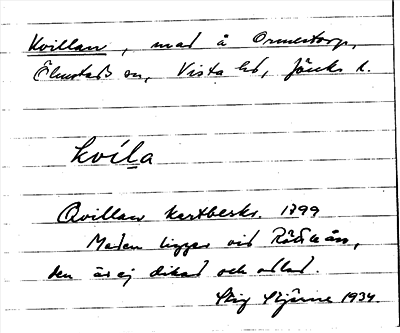 Kvillan, mad å Ormestorp,
Ölmstads sn, Vista hd, Jönk. l.
kvíla
Qvillan kartbeskr. 1799
Maden ligger vid Röttleån,
den är ej dikad och odlad.
Stig Stjärne 1934.